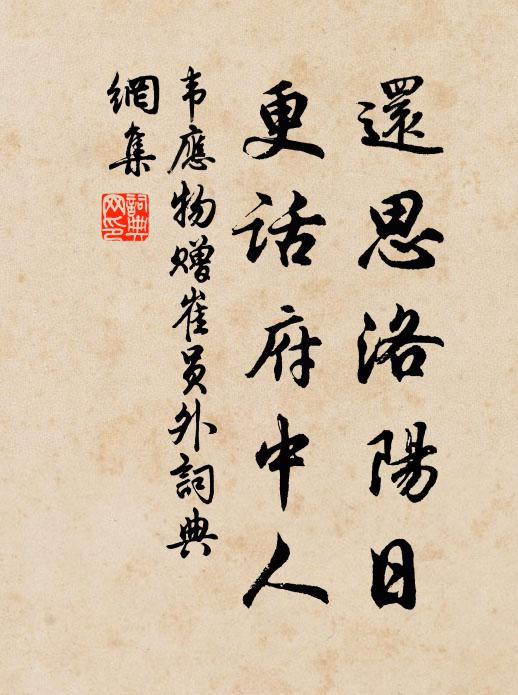 還思洛陽日
更話府中人
韦應物赠崔员外詞典
網集
詞典
网印